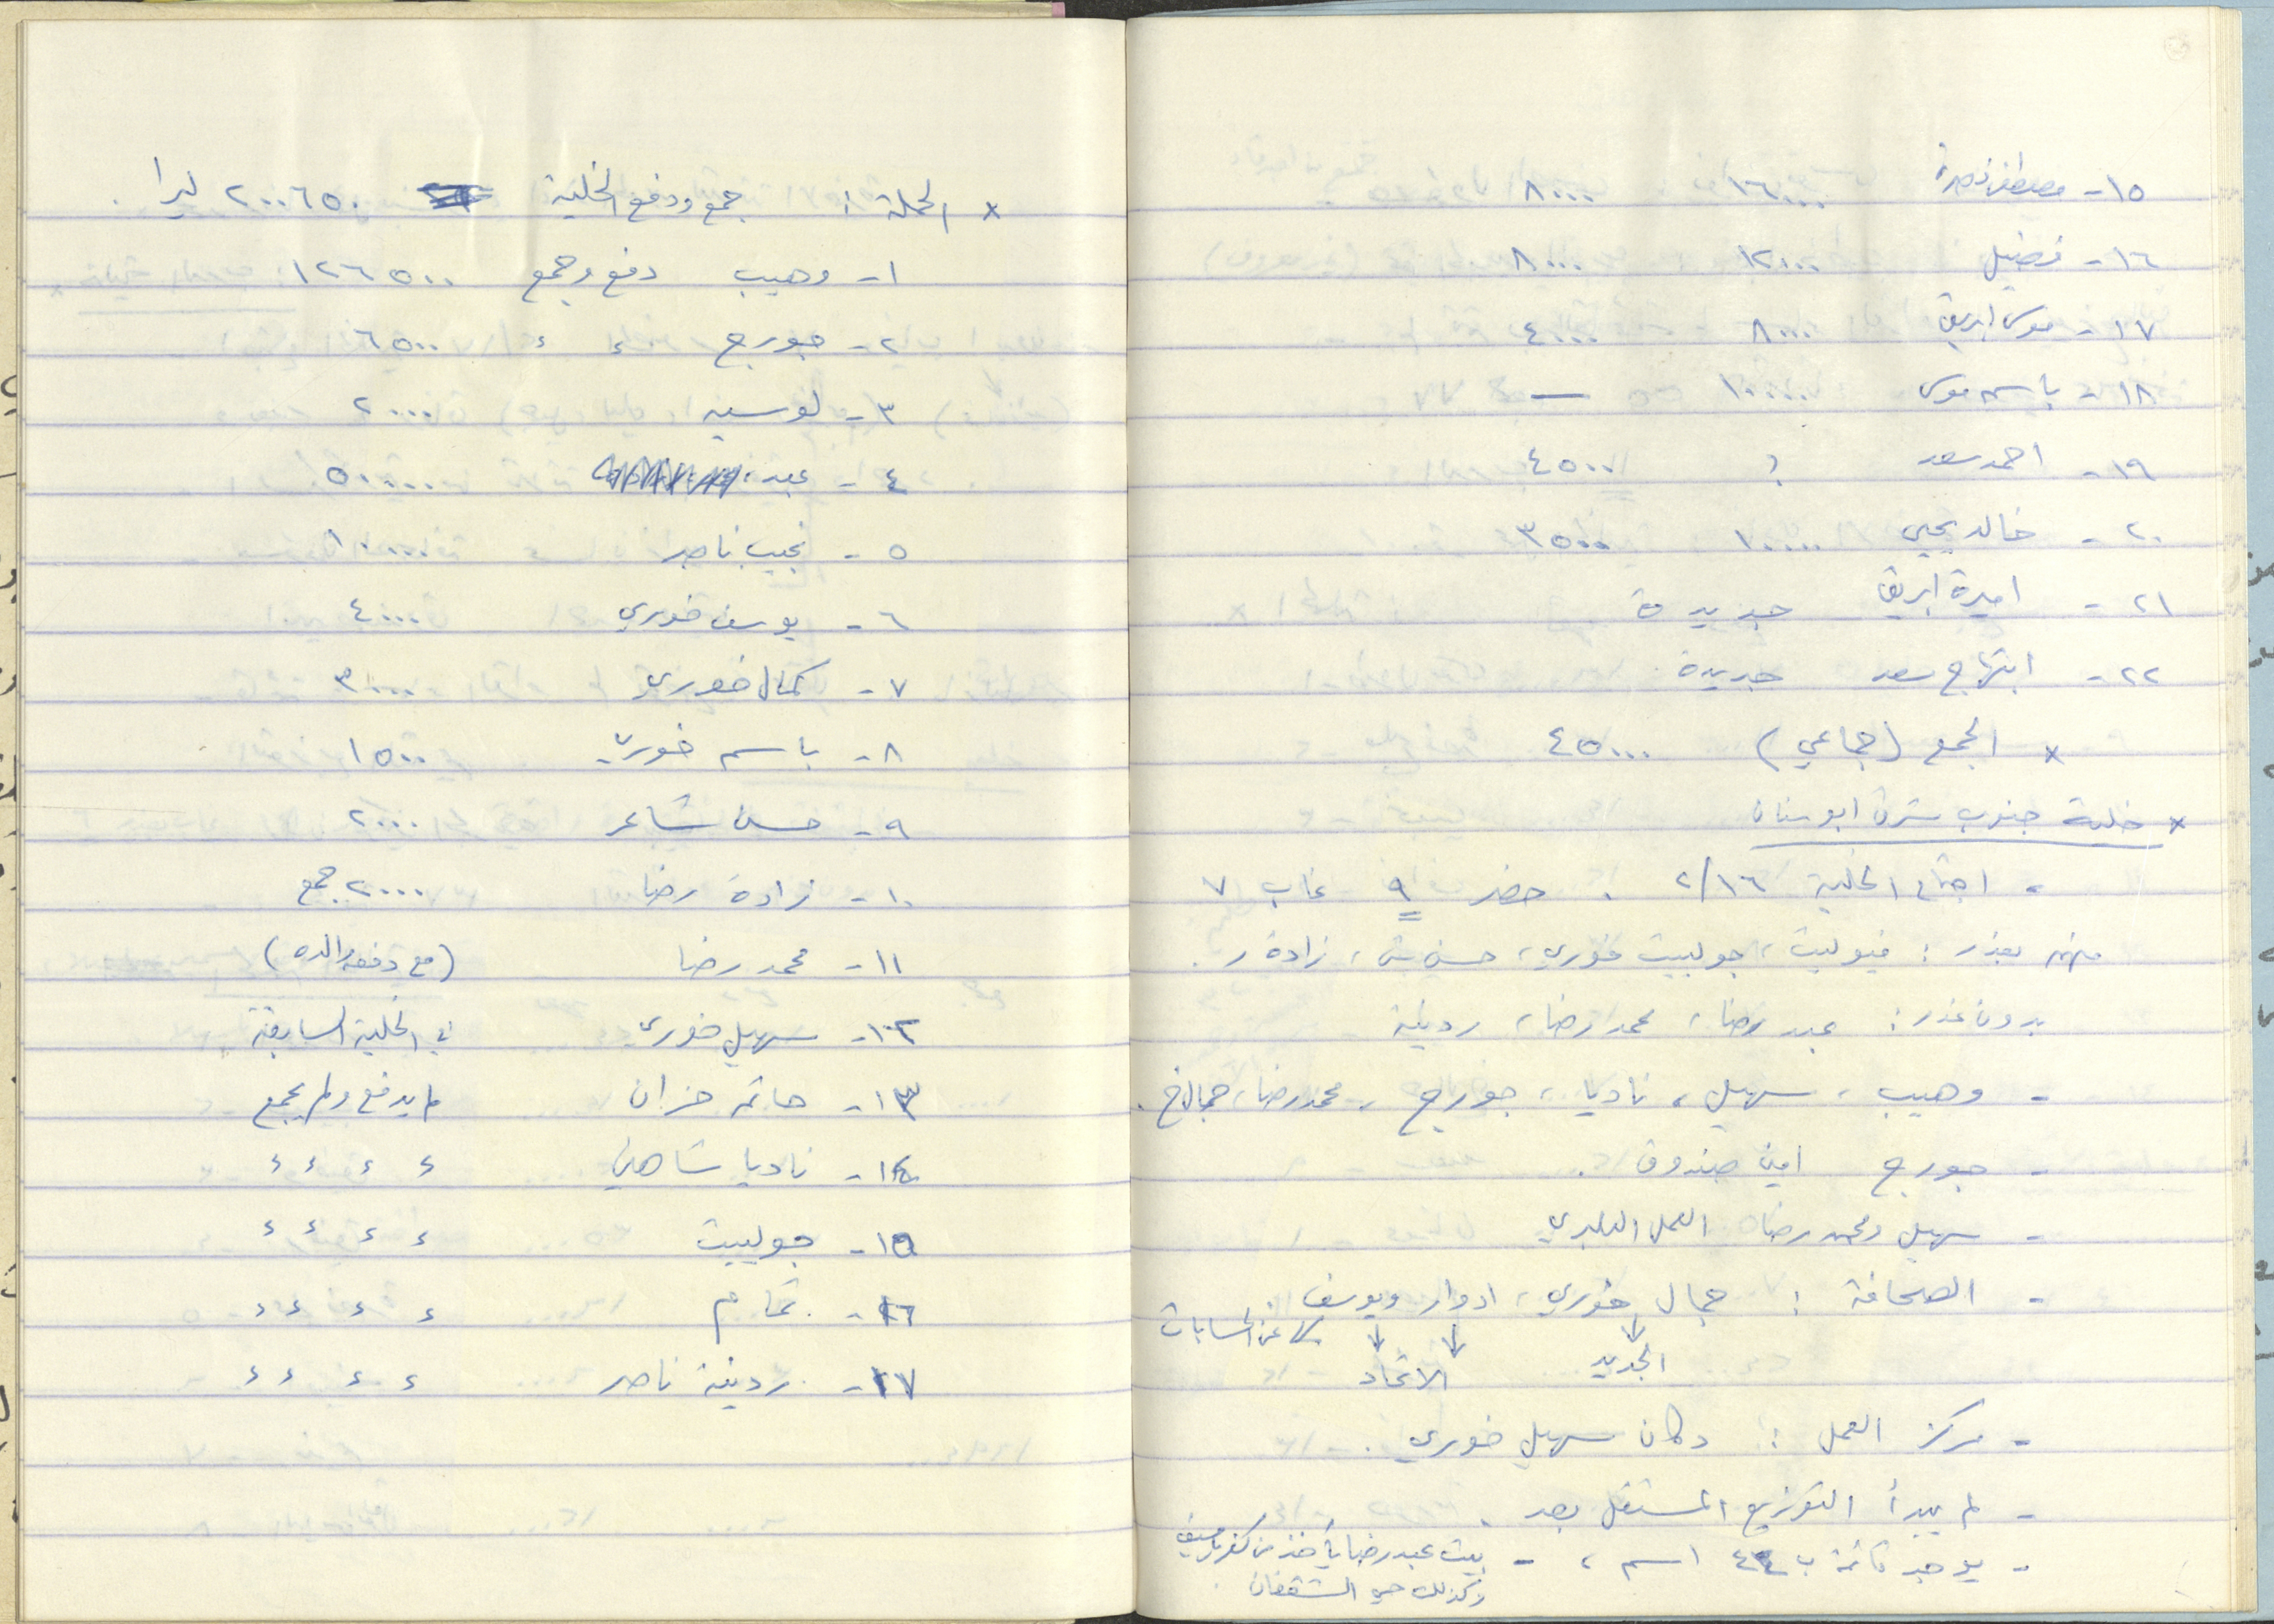 ١٥- مصطفى نصرة ١٦٠٠٠ ٨٠٠٠
١٦- فضيل ١٢٠٠٠ ٨٠٠٠
١٧- موسى ابريق ٨٠٠٠ ٤٠٠٠
١٨- باسم موسى ١٠٠٠٠ —
١٩- احمد سعد ؟ ٤٥٠٠
٢٠- خالد يحيى ١٠٠٠٠ ٣٥٠٠
٢١- اميرة ابريق جديدة
٢٢- ابتهاج سعد جديدة
x الجمع (جماعي) ٤٥٠٠٠
x خلية جنوب شرق ابو سنان
- اجتماع الخلية ٢/١٦ . حضر ٩ غاب ٧
منهم بعذر : فيوليت، جولييت خوري، حسن ش، زادة ر.
بدون عذر : عبد رضا، محمد رضا، ردينة
- وهيب، سهيل، ناديا، جورج، محمد رضا، جمال خ.
- جورج امين صندوق.
- سهيل ومحمد رضا العمل البلدي
- الصحافة : جمال خوري، ادوار ويوسف
↓ ↓ ↓ كل عن الحسابات
الجديد الاتحاد
- مركز العمل : دكان سهيل خوري.
- لم يبدأ التوزيع المستقل بعد.
- يوجد قائمة ب ٤٤ اسم، - بيت عبد رضا يأخذ من كفر ياسيف
وكذلك حي الشقفان.
x الحملة : جمع ودفع الخلية ٢٠٠٦٥٠ ليرا.
١- وهيب دفع وجمع ١٢٦٥٠٠
٢- جورج ء ء ٦٥٠٠
٣- لوسيه ٢٠٠٠
٤- عبد ٥٠٠٠٠
٥- نجيب ناصر ١٠٠٠٠
٦- يوسف خوري ٤٠٠٠
٧- كمال خوري ٣٠٠٠
٨- باسم خوري ١٥٠٠
٩- حسن شاعر ٢٠٠٠
١٠- زادة رضا ٢٠٠٠ جمع
١١- محمد رضا (مع دفعة والده)
١٢- سهيل خوري في الخلية السابقة
١٣- حاتم خزان لم يدفع ولم يجمع
١٤- ناديا شاهين ء ء ء ء
١٥- جولييت ء ء ء ء
١٦- تمام ء ء ء ء
١٧- ردينة ناصر ء ء ء ء